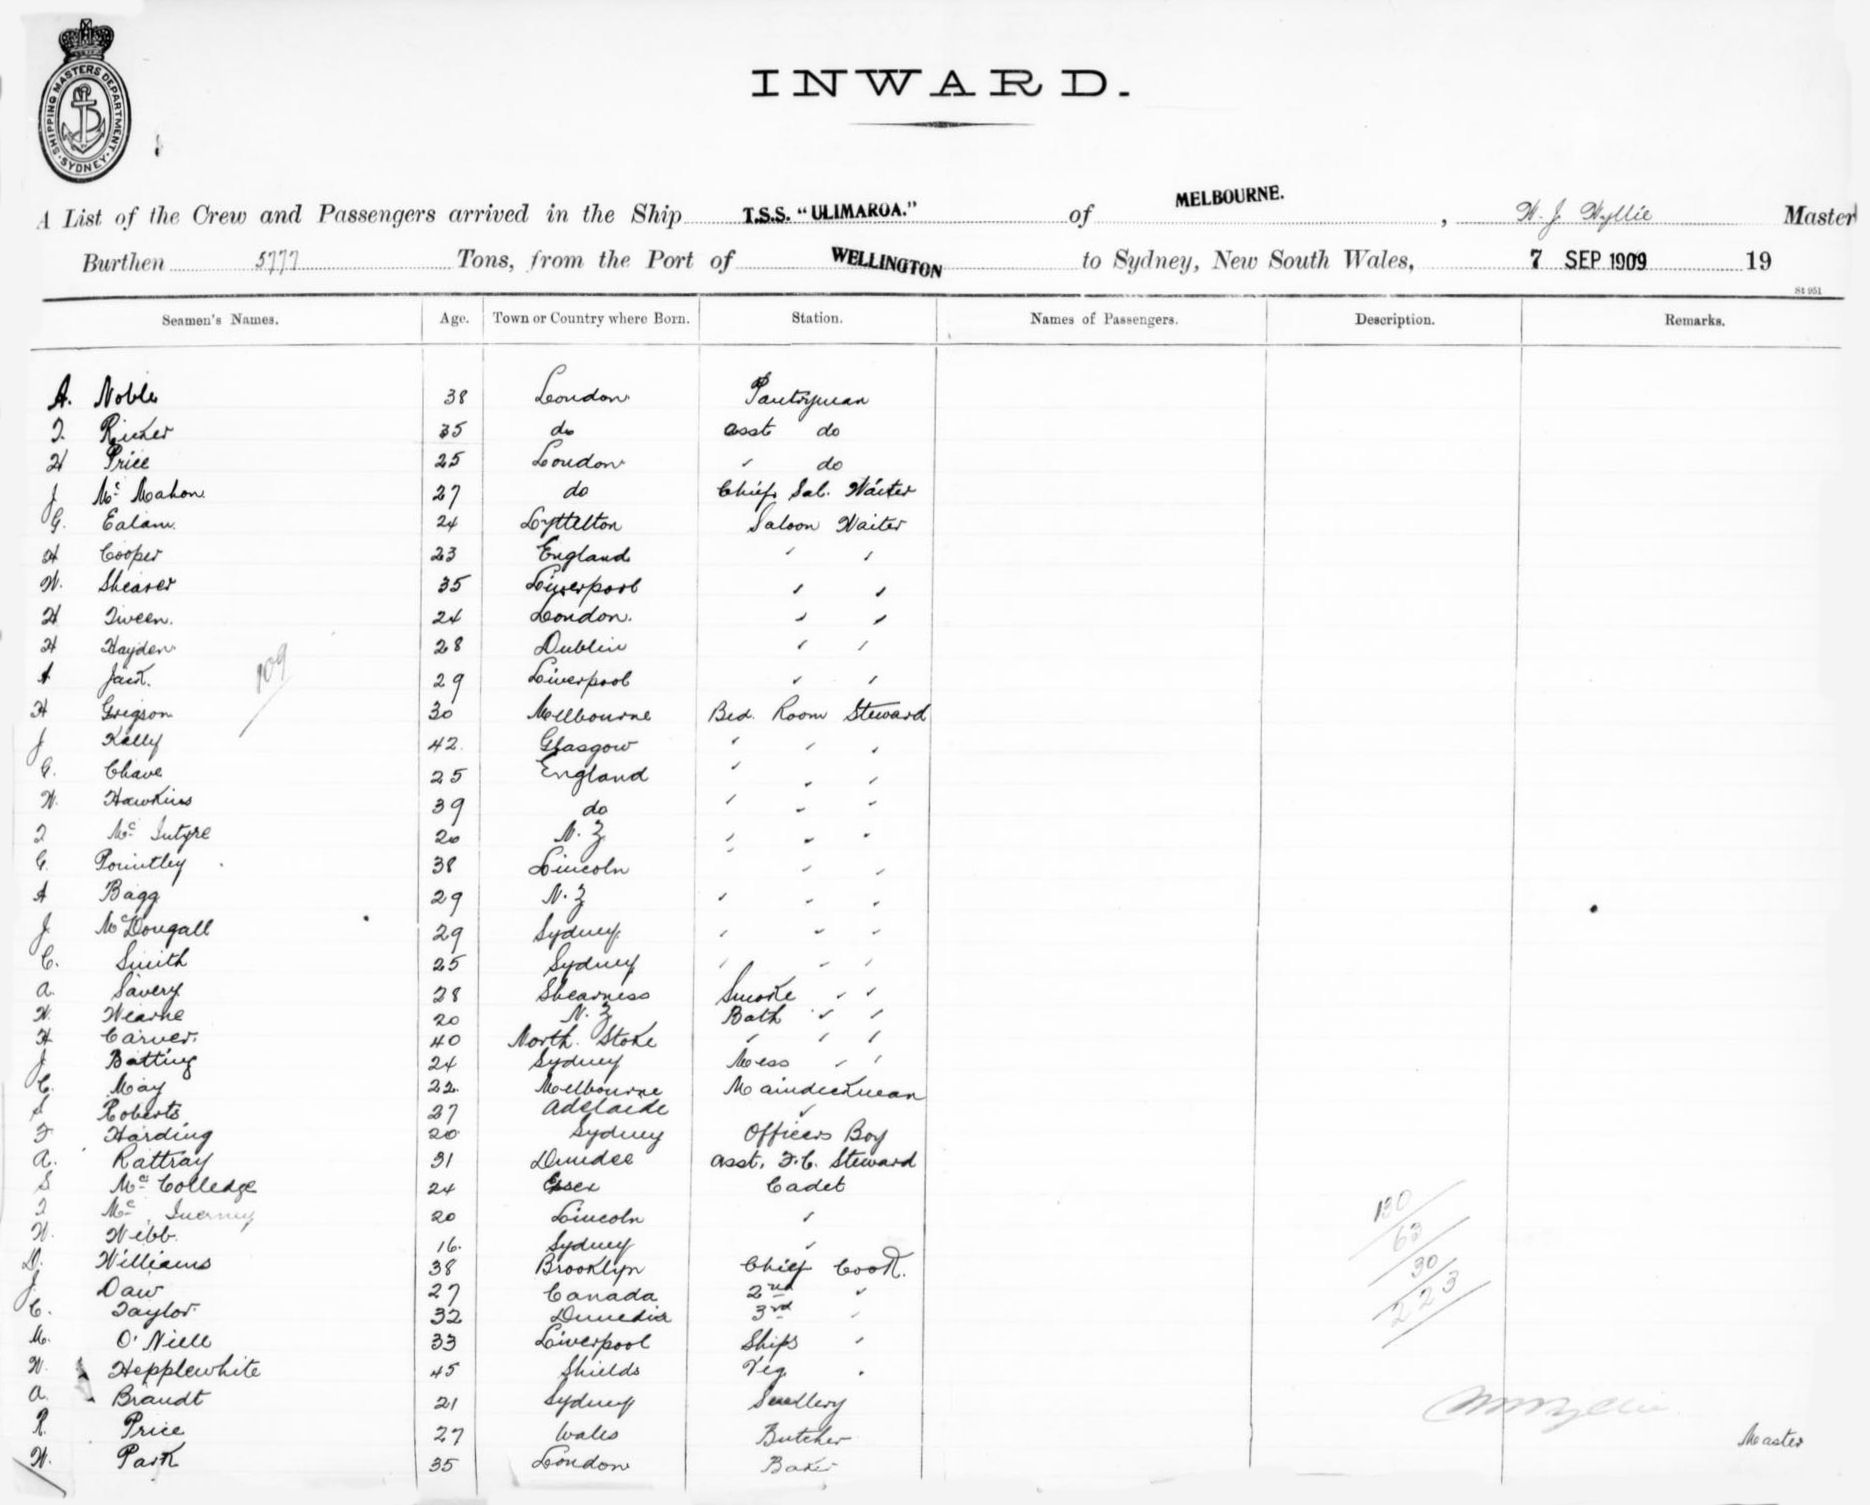 SHIPPING MASTERS DEPARTMENT. SYDNEY
INWARD.
A List of the Crew and Passengers arrived in the Ship T.S.S. "ULIMAROA." of MELBOURNE. , W. J. Wyllie Master
Burthen 5777 Tons, from the Port of WELLINGTON to Sydney, New South Wales, 7 SEP 1909 19
St 951
Seamen's Names. Age. Town or Country where Born. Station. Names of Passengers. Description. Remarks.
A. Noble 38 London Pantryman
T. Ricker 35 do asst do
H Price 25 London " do
J Mc Mahon 27 do Chief Sal. Waiter
G. Ealam 24 Lyttelton Saloon Waiter
H Cooper 23 England " "
W. Shearer 35 Liverpool " "
H Tween. 24 London. " "
H Hayden 28 Dublin " "
A Jack. 29 Liverpool " "
109
H Grigson 30 Melbourne Bed. Room Steward
J Kelly 42. Glasgow " " "
G. Chave 25 England " " "
W. Hawkins 39 do " " "
T Mc Intyre 20 N. Z " " "
G. Pountley 38 Lincoln " " "
A Bagg 29 N. Z " " "
J. McDougall 29 Sydney " " "
C. Smith 25 Sydney " " "
A. Savery 28 Shearness Smoke " "
W. Hearne 20 N. Z Bath " "
H Carver. 40 North. Stoke " " "
J Batting 24 Sydney Mess " "
C. May 22. Melbourne Maindeckman
S Roberts 27 Adelaide "
F Harding 20 Sydney Officers Boy
A. Rattray 31 Dundee asst. F.C. Steward
S Mc Colledge 24 Essex Cadet
T Mc Inerney 20 Lincoln "
W. Webb. 16. Sydney "
D. Williams 38 Brooklyn Chief Cook.
J. Daw 27 Canada 2nd "
C. Taylor 32 Dunedin 3rd "
M. O'Niell 33 Liverpool Ships "
W. Hepplewhite 45 Shields Veg. "
A. Brandt 21 Sydney Scullery
R. Price 27 Wales Butcher
W. Park 35 London Baker
130
63
30
223
Master